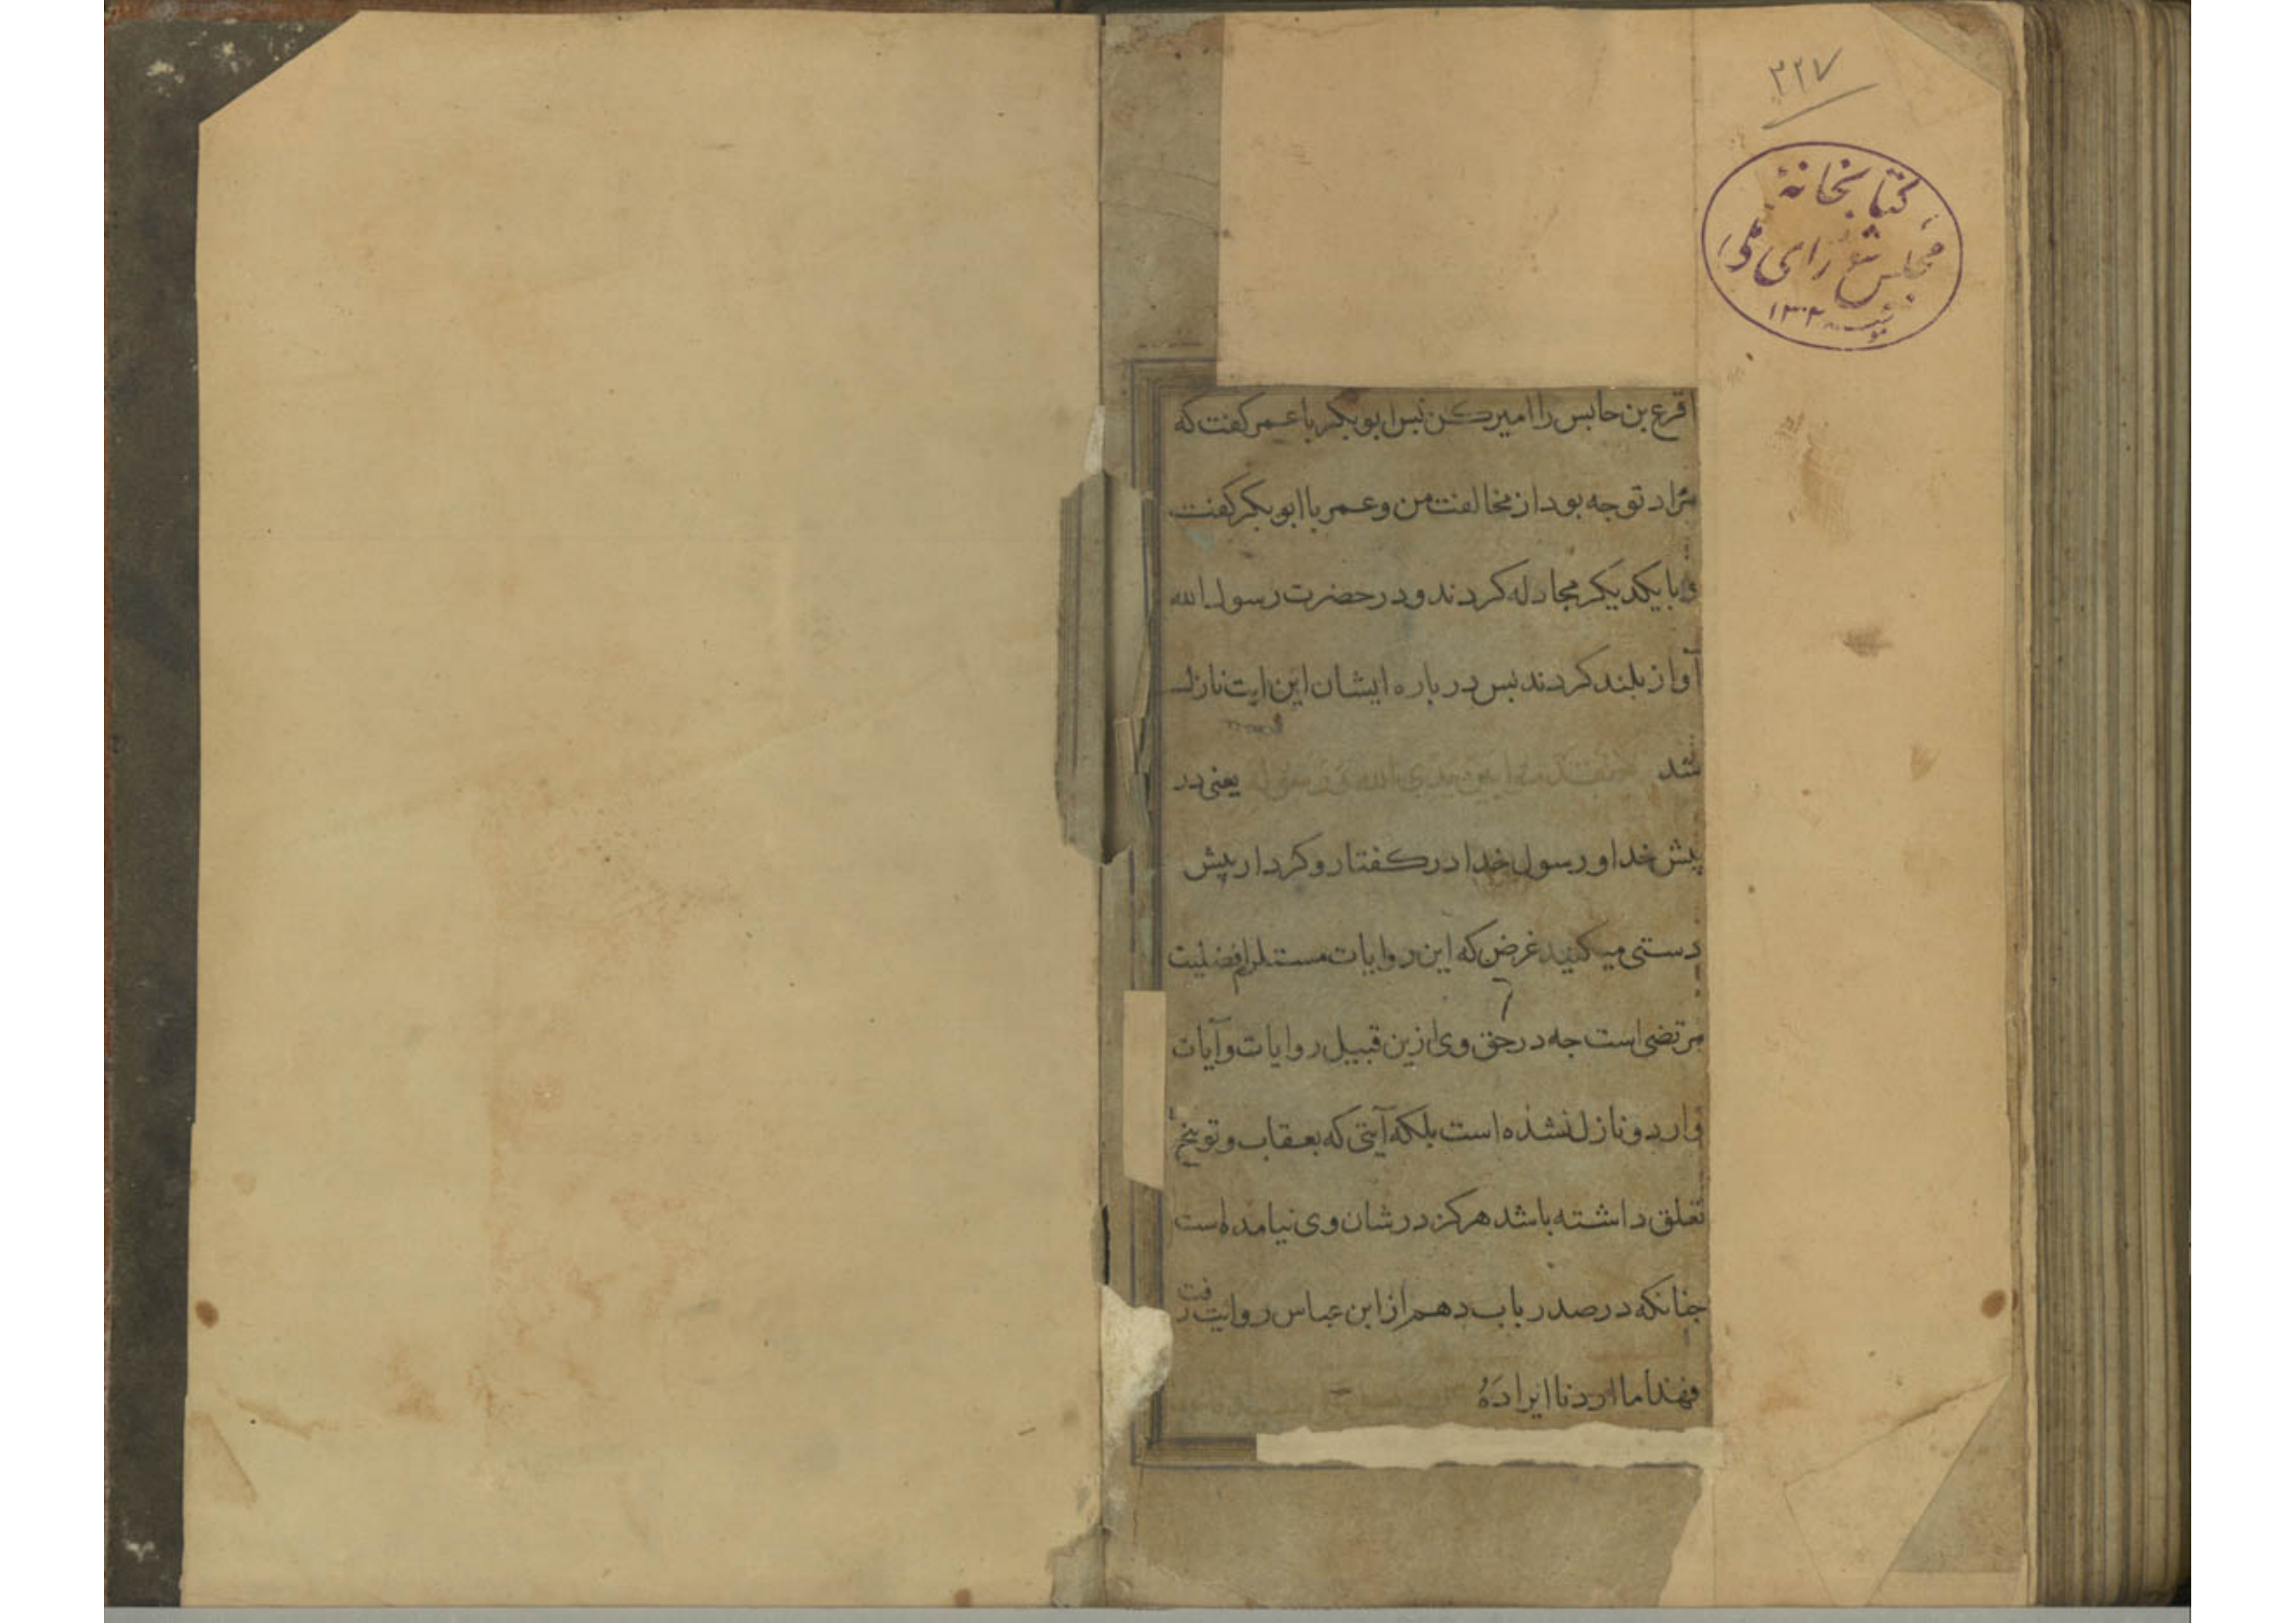 ۲۲۷
کتابخانهٔ
مجلس شورای ملی
۱۳۰۲
اقرع بن حابس را امیرکن بس ابوبکر با عمر کفت که
مراد تو جه بود از مخالفت من و عمر با ابوبکر کفت
و با یکدیکر مجادله کردند و در حضرت رسول الله
آواز بلند کردند بس در باره ایشان این ایت نازل
شد لا تقدموا بین یدی الله و رسوله یعنی در
پیش خدا و رسول خدا در کفتار و کردار پیش
دستی میکنید غرض که این روایات مستلزم افضلیت
مرتضی است جه در حق وی ازین قبیل روایات و آیات
وارد و نازل نشده است بلکه آیتی که بعقاب و توبیخ
تعلق داشته باشد هرکز در شان وی نیامده است
جنانکه در صدر باب دهم از ابن عباس روایت رفت
فهذا ما اردنا ایرادَهُ